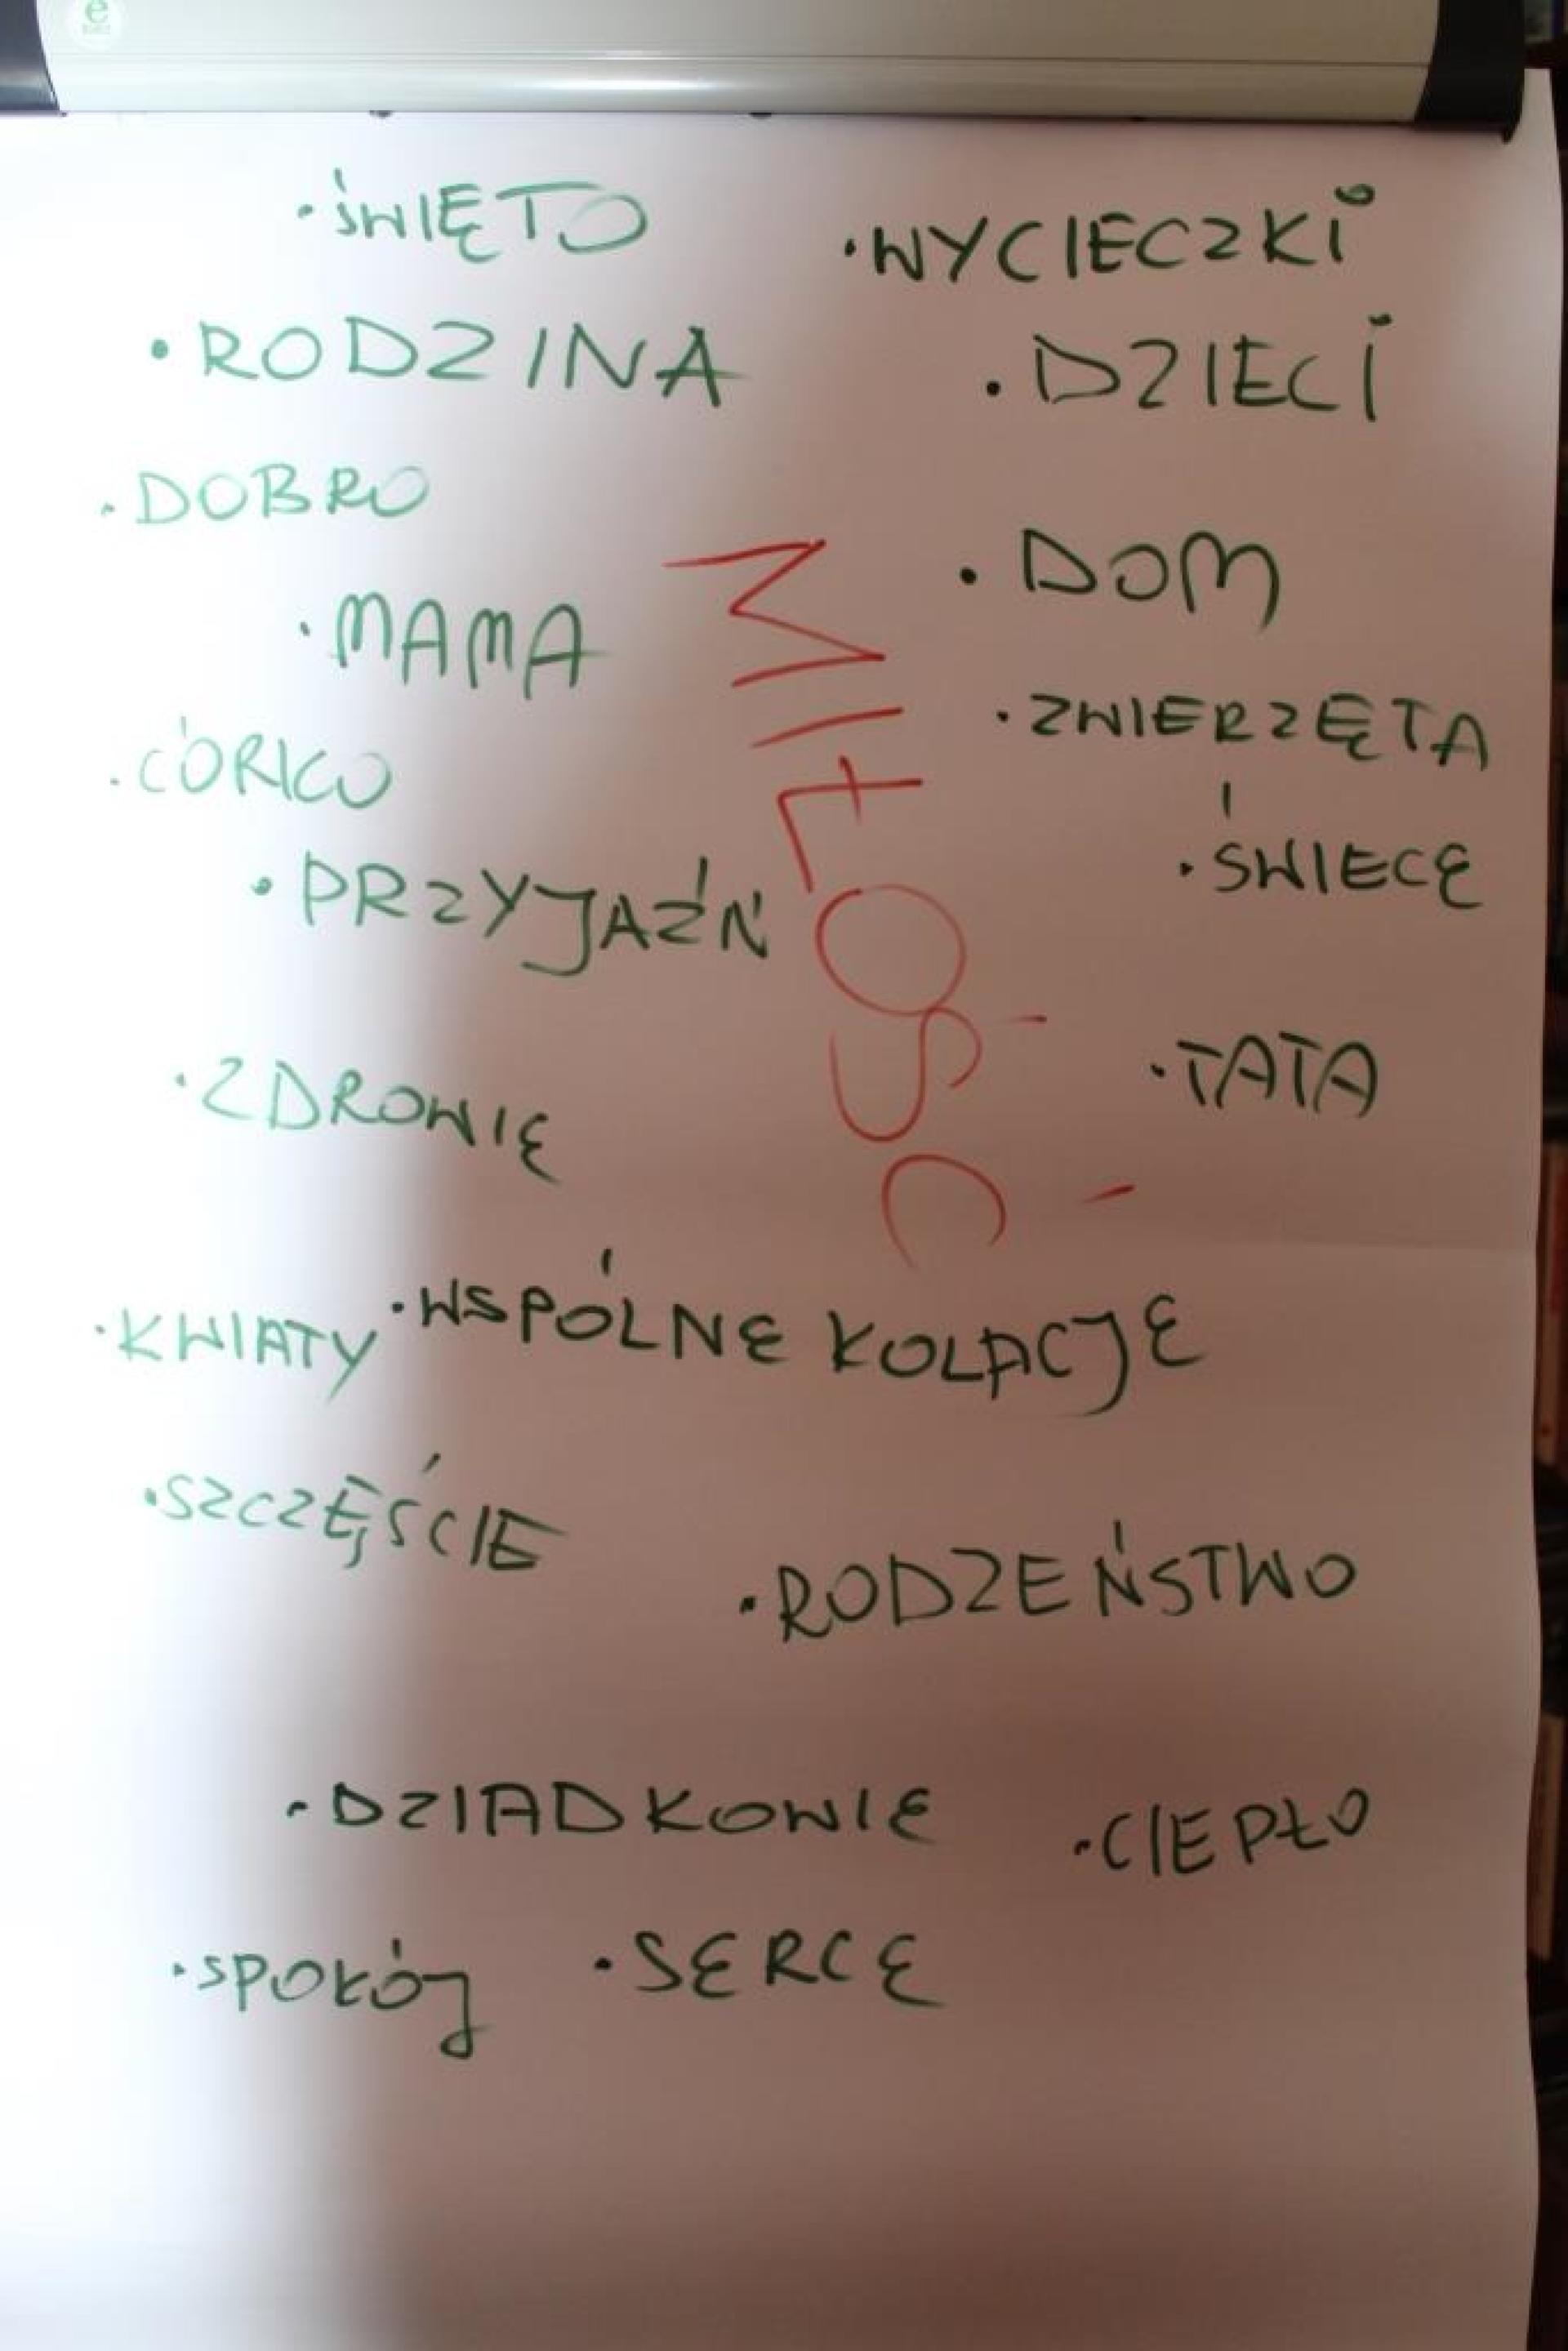 ·ŚWIĘTO
·WYCIECZKI
·RODZINA
·DZIECI
·DOBRO
·DOM
·MAMA
MIŁOŚĆ
·ZWIERZĘTA
·CÓRKO
·ŚWIECE
·PRZYJAŹŃ
·TATA
·ZDROWIE
·KWIATY
·WSPÓLNE KOLACJE
·SZCZĘŚCIE
·RODZEŃSTWO
·DZIADKOWIE
·CIEPŁO
·SPOKÓJ
·SERCE